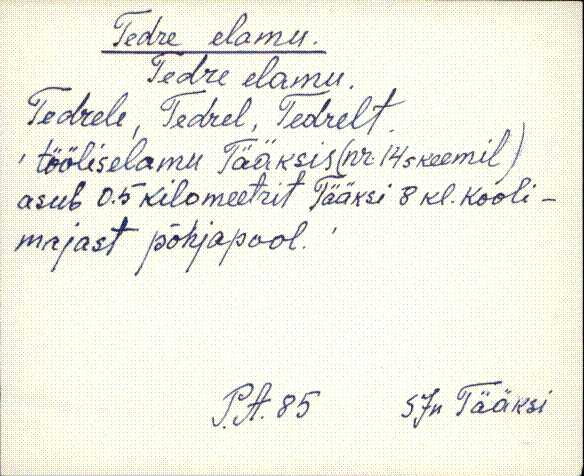 Tedre elamu.
Tedre elamu.
Tedrele, Tedrel, Tedrelt.
' tööliselamu Tääksis (nr. 14 skeemil)
asub 0.5 kilomeetrit Tääksi 8 kl. kooli-
majast põhjapool. '
P.A. 85 SJn Tääksi